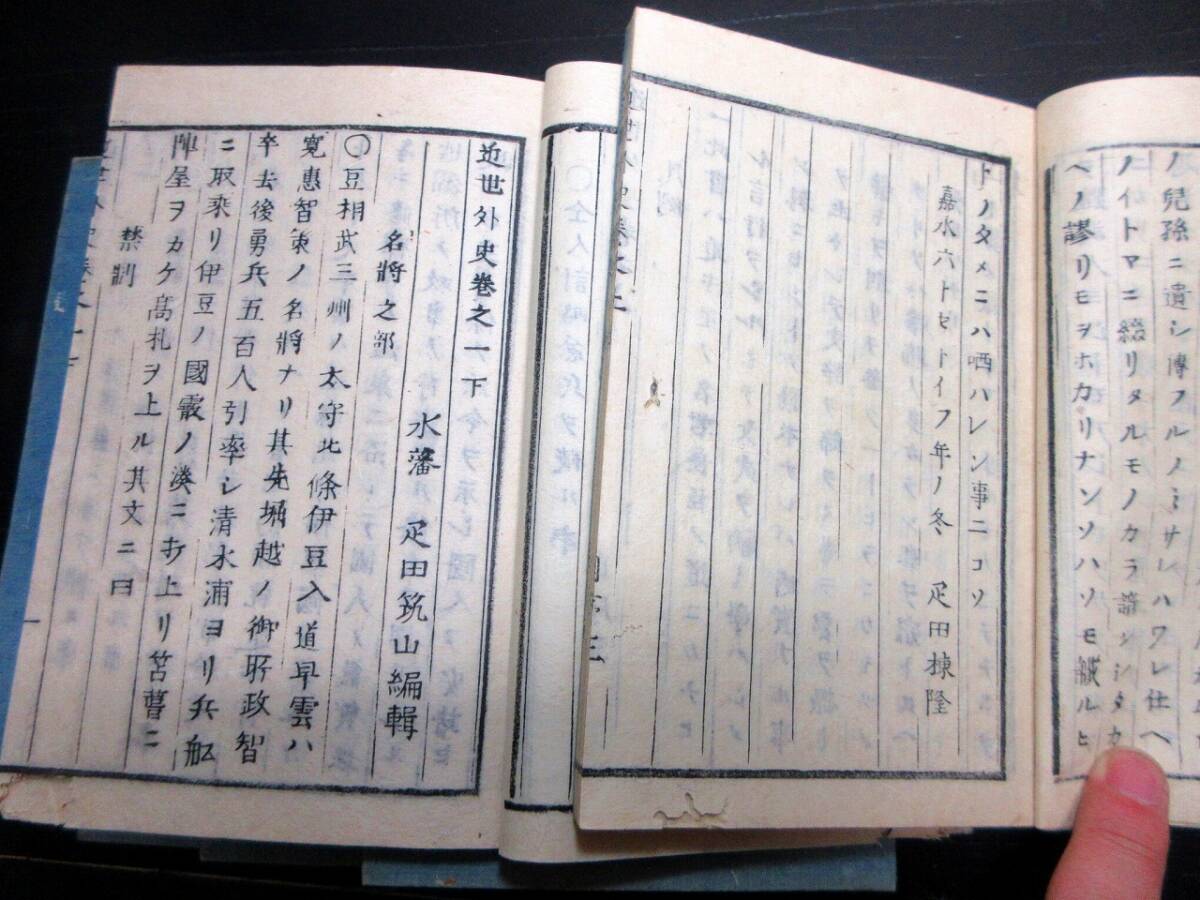 ノ兒孫ニ遺シ傳フルノミサレハワレ仕ヘ
ノイトマニ綴リタルモノカラ諳ンシタカ
ヘノ謬リモヲホカリナンソハソモ誠ルヒ
トノタメニハ哂ハレン事ニコソ
嘉永六トセトイフ年ノ冬 疋田棟隆
近世外史卷之一下
水藩 疋田筑山編輯
名將之部
〇豆相武三州ノ太守北條伊豆入道早雲ハ
寛惠智策ノ名將ナリ其先堀越ノ御所政智
卒去後勇兵五百人引率シ清水浦ヨリ兵舩
ニ取乘リ伊豆ノ國霰ノ湊ニ打上リ笘曹ニ
陣屋ヲカケ高札ヲ上ル其文ニ曰
禁制